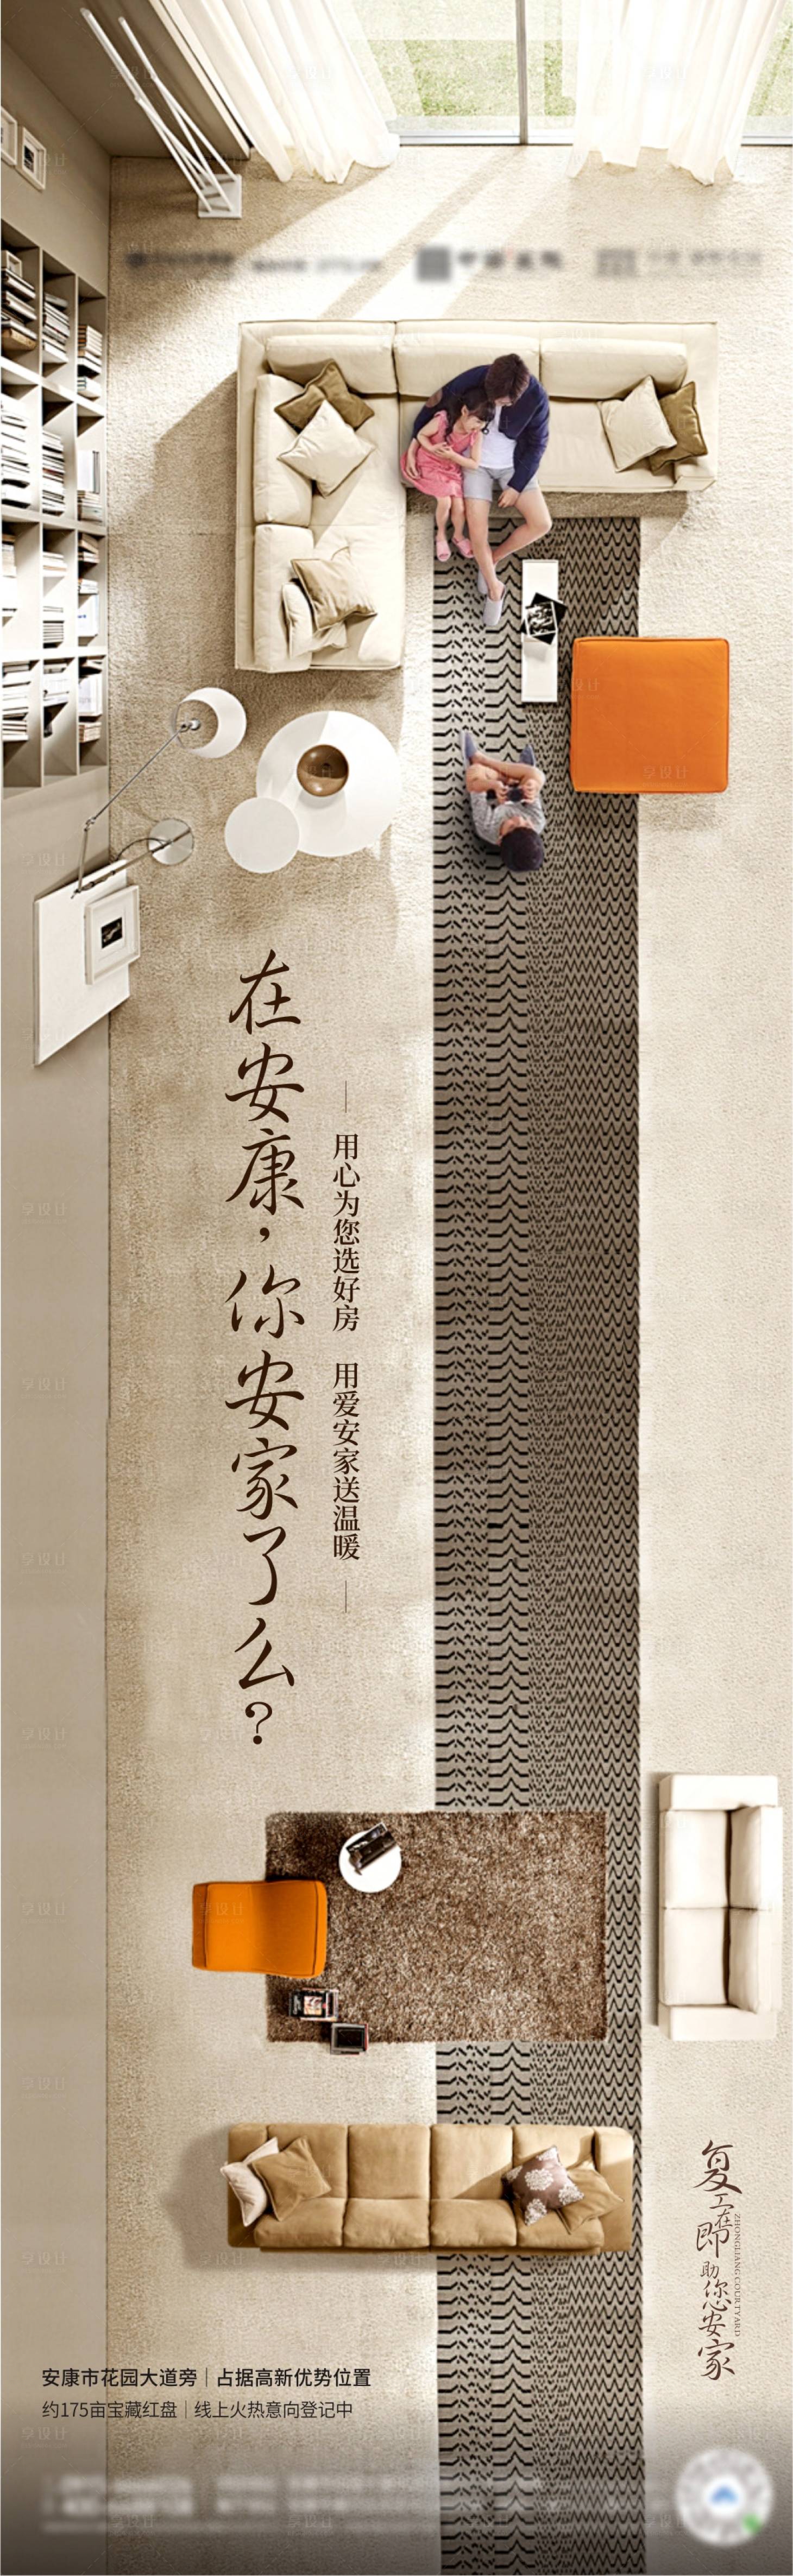 在安康，你安家了么？
用心为您选好房 用爱安家送温暖
复工在即
助您心安家
ZHONGLIANG COURTYARD
安康市花园大道旁｜占据高新优势位置
约175亩宝藏红盘｜线上火热意向登记中
享设计